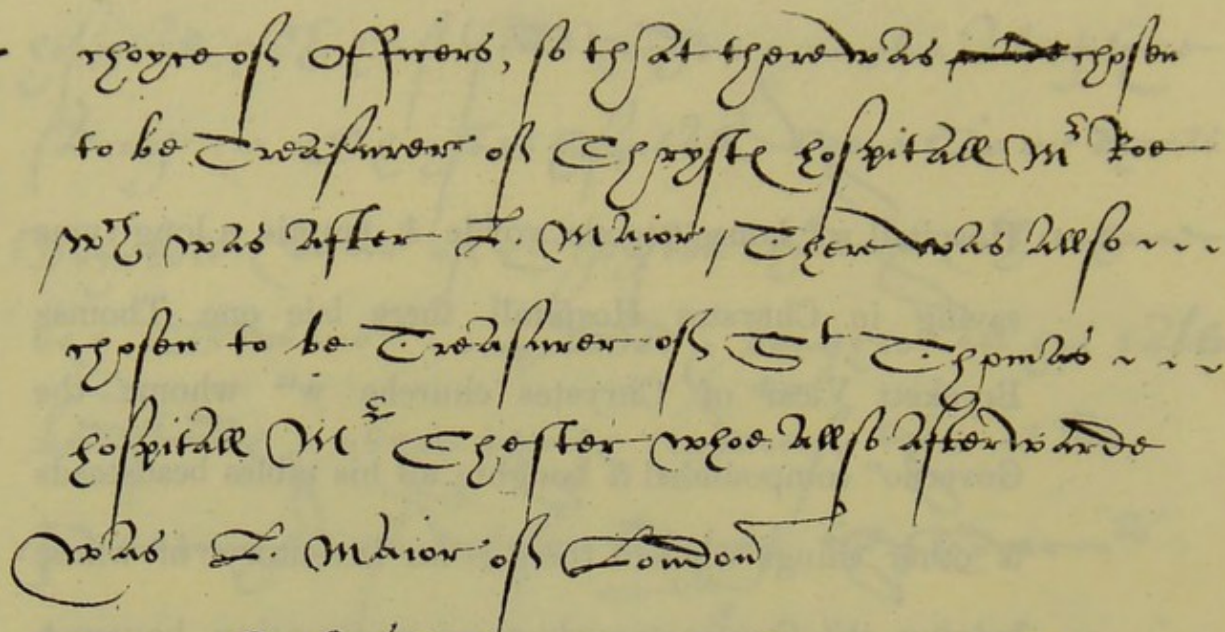 choyce of Officers, so that there was chosen
to be Treasurer of Chrysts hospitall Mr Roe
wch was after L. Maior / There was allso ~ ~ ~
chosen to be Treasurer of St Thomas ~ ~ ~
hospitall Mr Chester whoe allso afterwarde
was L. Maior of London